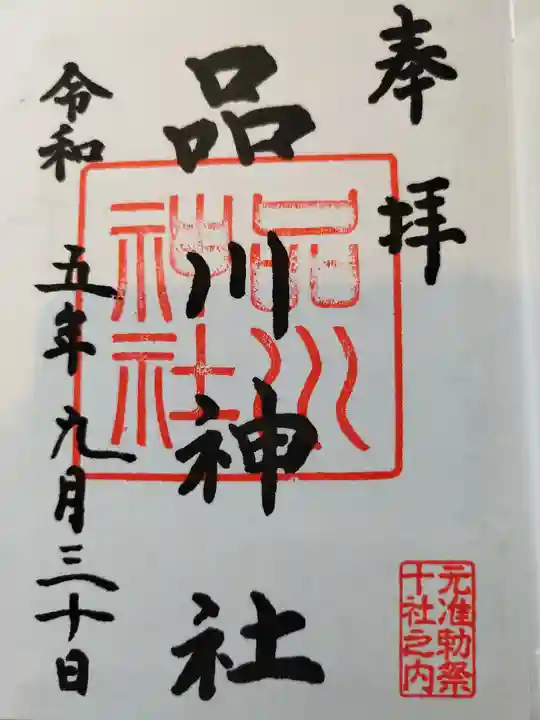 奉拝
品川神社
品川
神社
令和五年九月三十日
元准勅祭
十社之内